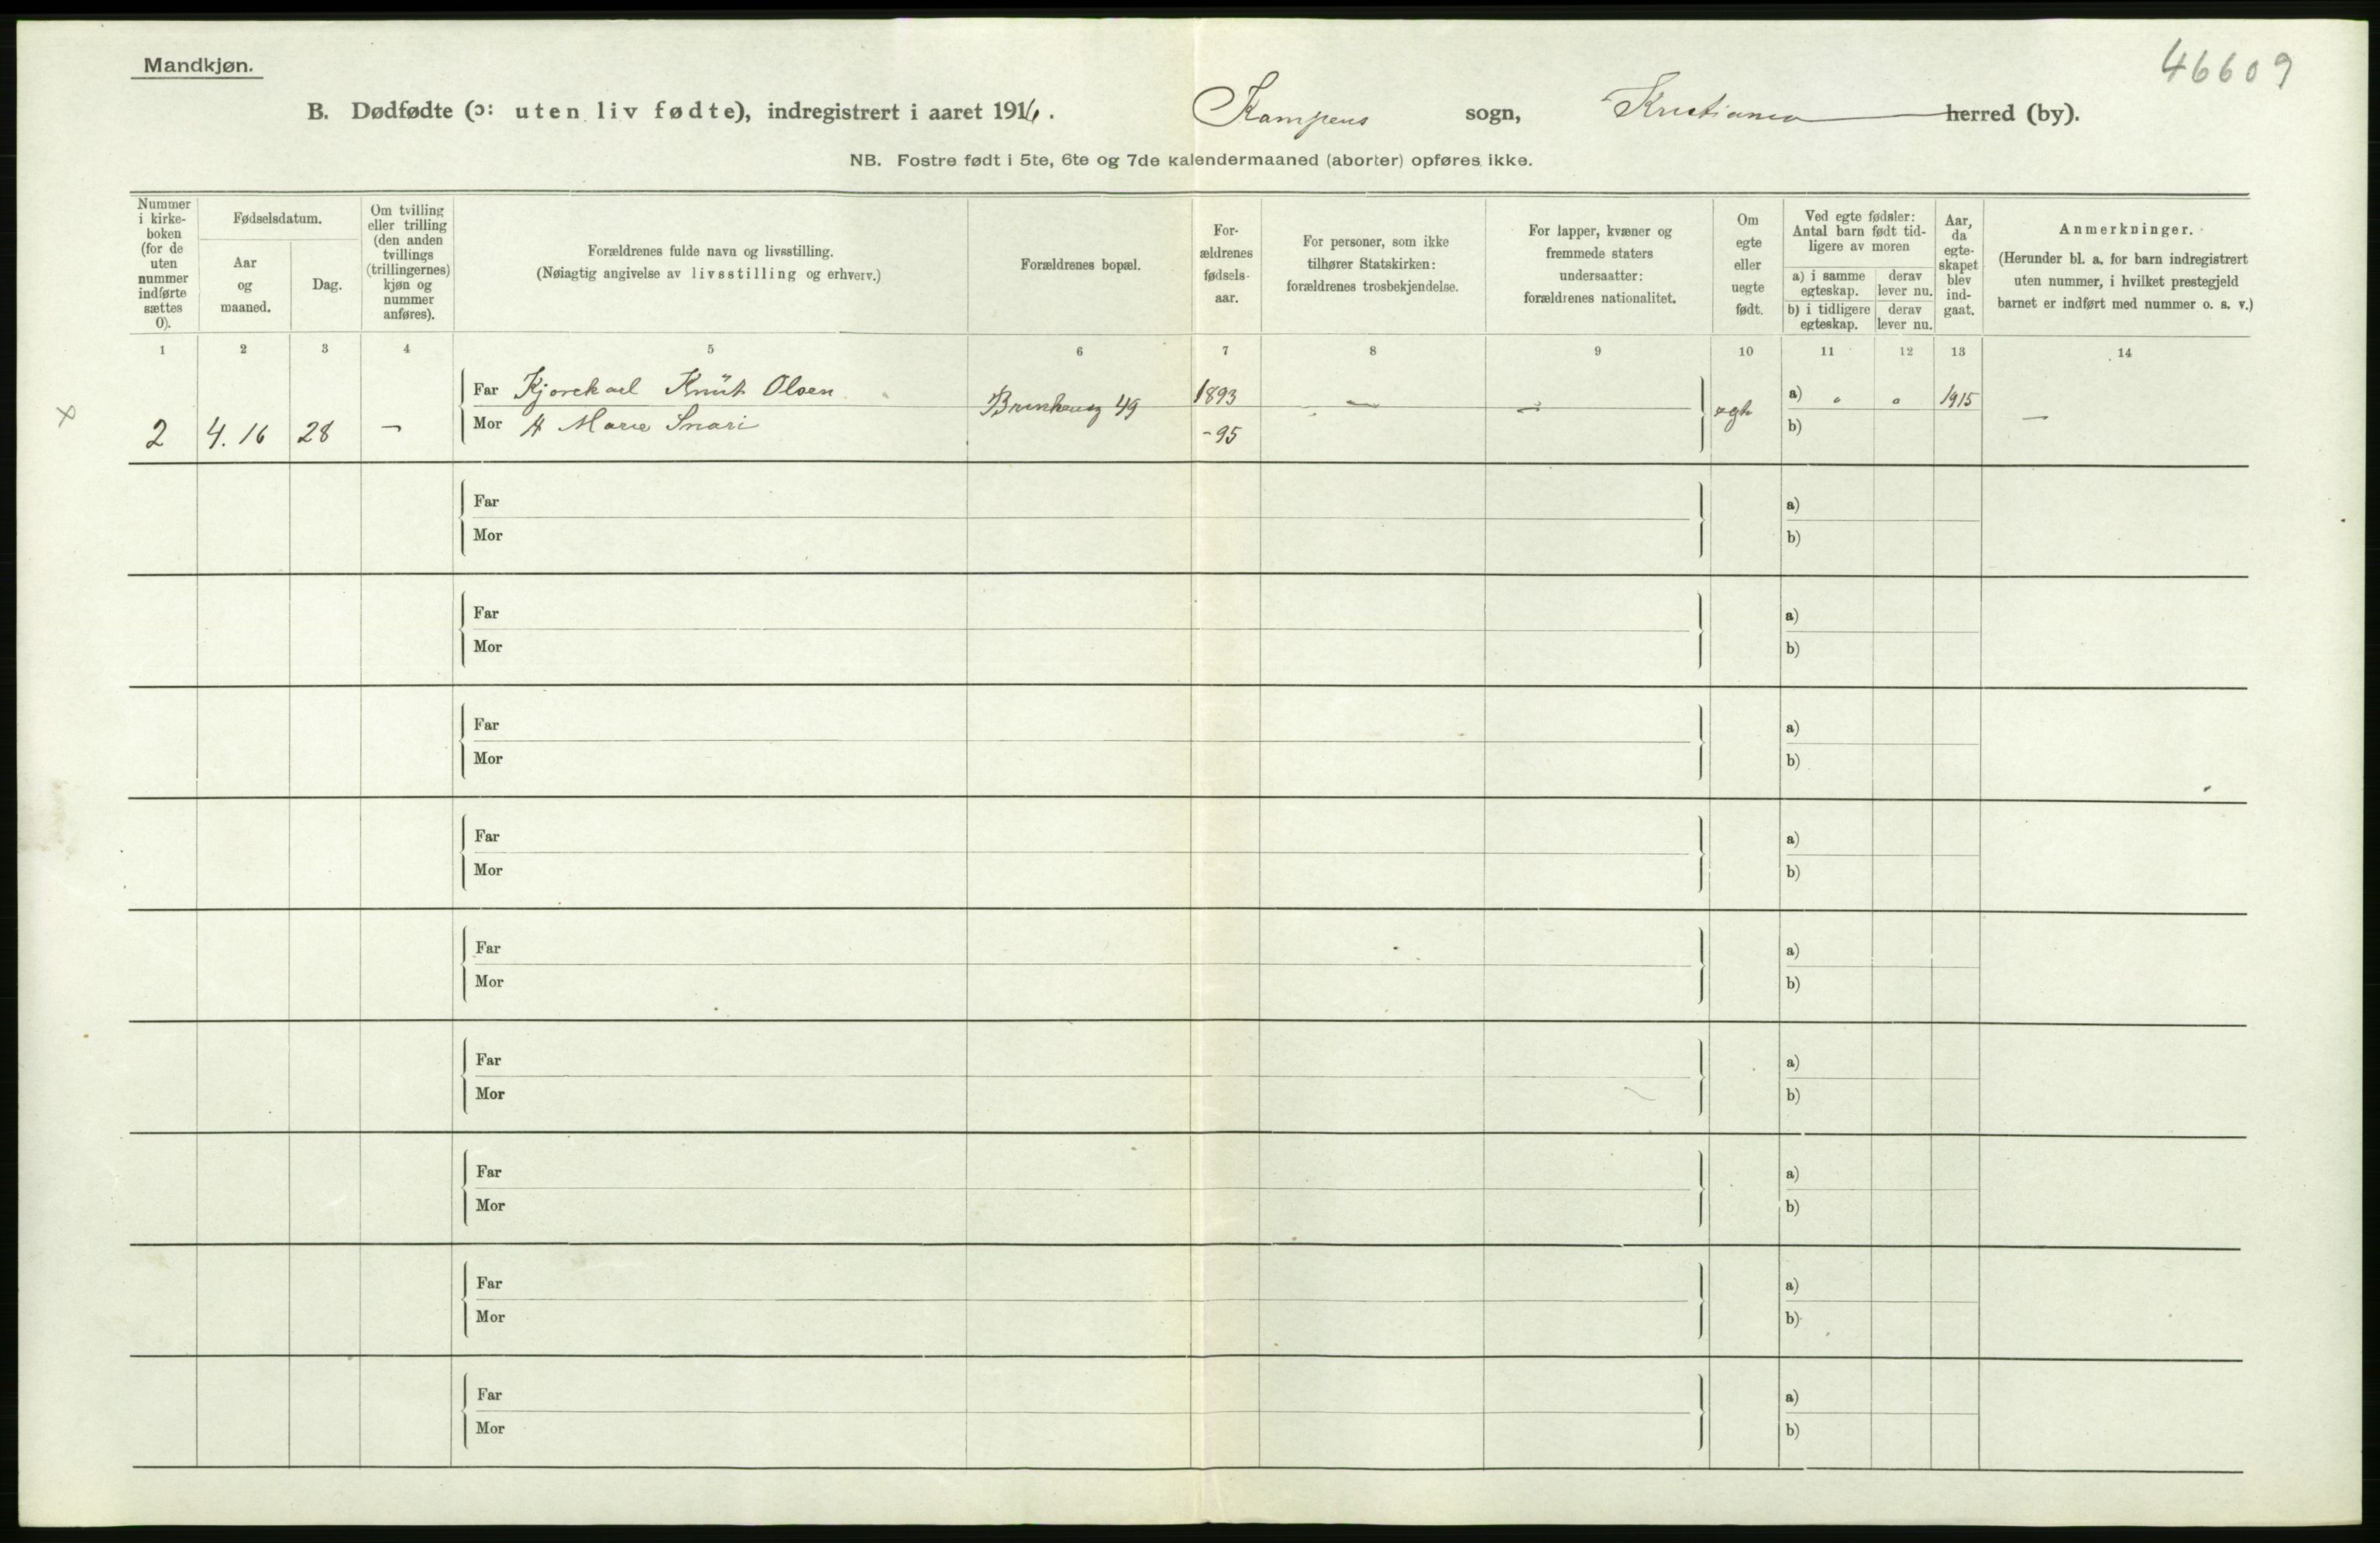 46609
Mandkjøn.
B. Dødfødte (ɔ: uten liv fødte), indregistrert i aaret 1916. Kampens sogn, Kristiania herred (by).
NB. Fostre født i 5te, 6te og 7de kalendermaaned (aborter) opføres ikke.
Nummer i kirke-boken (for de uten nummer indførte sættes 0).
Fødselsdatum.
Aar og maaned.
Dag.
Om tvilling eller trilling (den anden tvillings (trillingernes) kjøn og nummer anføres).
Forældrenes fulde navn og livsstilling.
(Nøiagtig angivelse av livsstilling og erhverv.)
Forældrenes bopæl.
For-ældrenes fødsels-aar.
For personer, som ikke tilhører Statskirken: forældrenes trosbekjendelse.
For lapper, kvæner og fremmede staters undersaatter: forældrenes nationalitet.
Om egte eller uegte født.
Ved egte fødsler: Antal barn født tid-ligere av moren
a) i samme egteskap.
derav lever nu.
b) i tidligere egteskap.
derav lever nu.
Aar, da egte-skapet blev ind-gaat.
Anmerkninger.
(Herunder bl. a. for barn indregistrert uten nummer, i hvilket prestegjeld barnet er indført med nummer o. s. v.)
1 2 3 4 5 6 7 8 9 10 11 12 13 14
x
Far Kjørekarl Knut Olsen 1893 — — a) " " 1915
2 4. 16 28 — Mor H Marie Snari 49 -95 egte b) —
Far a)
Mor b)
Far a)
Mor b)
Far a)
Mor b)
Far a)
Mor b)
Far a)
Mor b)
Far a)
Mor b)
Far a)
Mor b)
Far a)
Mor b)
Far a)
Mor b)